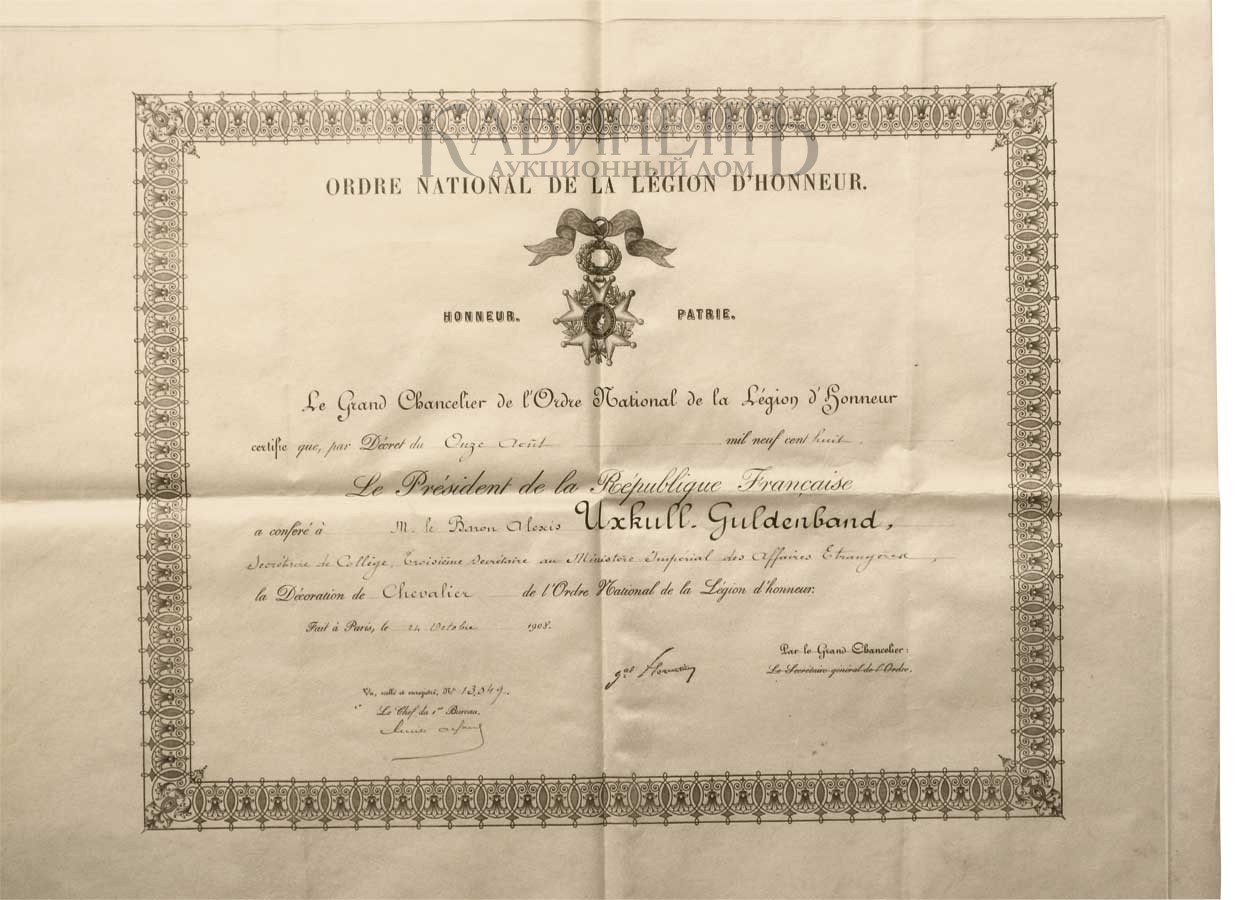 КАБИНЕТЪ
АУКЦИОННЫЙ ДОМ
ORDRE NATIONAL DE LA LÉGION D'HONNEUR.
HONNEUR. PATRIE.
Le Grand Chancelier de l'Ordre National de la Légion d'Honneur
certifie que, par Décret du Onze Août mil neuf cent huit.
Le Président de la République Française
a conféré à M. le Baron Alexis Uxkull-Guldenband,
Secrétaire de Collège, Troisième Secrétaire au Ministère Impérial des Affaires Etrangères,
la Décoration de Chevalier de l'Ordre National de la Légion d'honneur.
Fait à Paris, le 24 Octobre 1908.
Par le Grand Chancelier:
Le Secrétaire général de l'Ordre.
Vu, scellé et enregistré, No 13,549.
Le Chef du 1er Bureau.